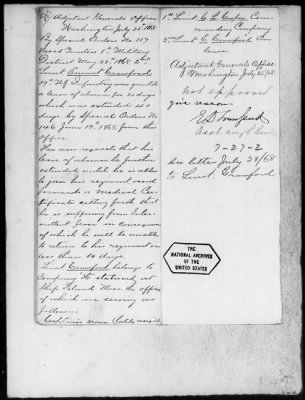 Adjutant Generals Office
Washington July 25th 1868
By Special Orders No 117
Head Quarters 4th Military
District May 28th 1868 2nd
Lieut Emmet Crawford
39th U.S. Infantry was granted
a leave of absence for 30 days
which was extended 20
days by Special Orders No
146 June 19th 1868 from this
office.
He now requests that his
leave of absence be further
extended until he is able
to join his regiment and
forwards a Medical Cer-
tificate setting forth that
he is suffering from Inter-
mittent fever in consequence
of which he will be unable
to return to his regiment in
less than 20 days.
Lieut Crawford belongs to
Company stationed at
Ship Island Miss. the officers
of which are serving as
follows;
Captain none
1st Lieut C. L. Com-
manding Company
2nd Lieut E. Crawford On
Leave
Adjutant Generals Office
Washington July 25/68
Not approved
give reason.
E D Townsend
Asst Adjt Gen
7-27-2
See letter July 28/68
to Lieut. Crawford
THE
NATIONAL ARCHIVES
OF THE
UNITED STATES